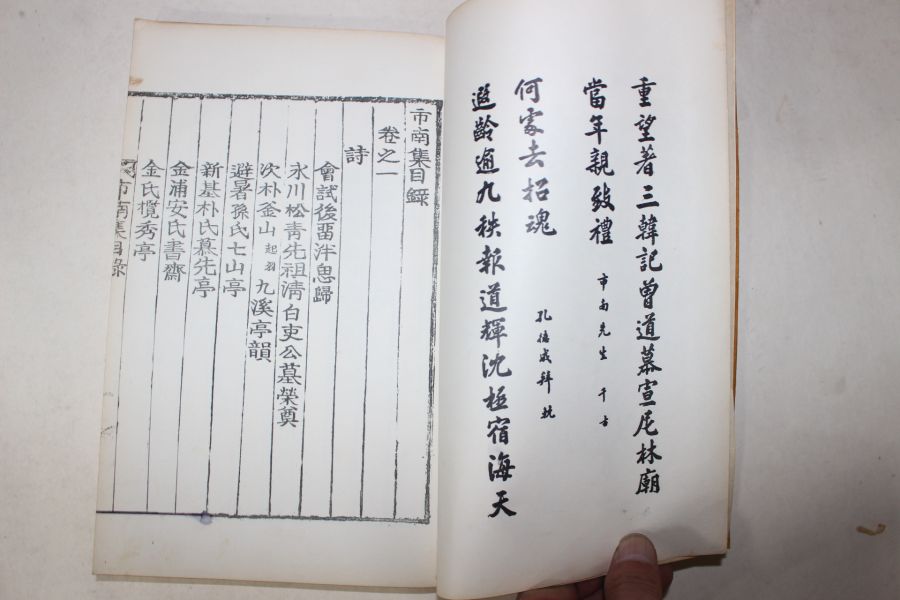 重望著三韓記曾道慕宣尼林廟
當年親致禮
市南先生 千古
何處去招魂
孔德成拜輓
遐齡逾九秩報道輝沈極宿海天
市南集目錄
卷之一
詩
會試後留泮思歸
永川松青先祖清白吏公墓榮奠
次朴釜山起羽九溪亭韻
避暑孫氏七山亭
新基朴氏慕先亭
金浦安氏書齋
金氏欖秀亭
市南集目錄